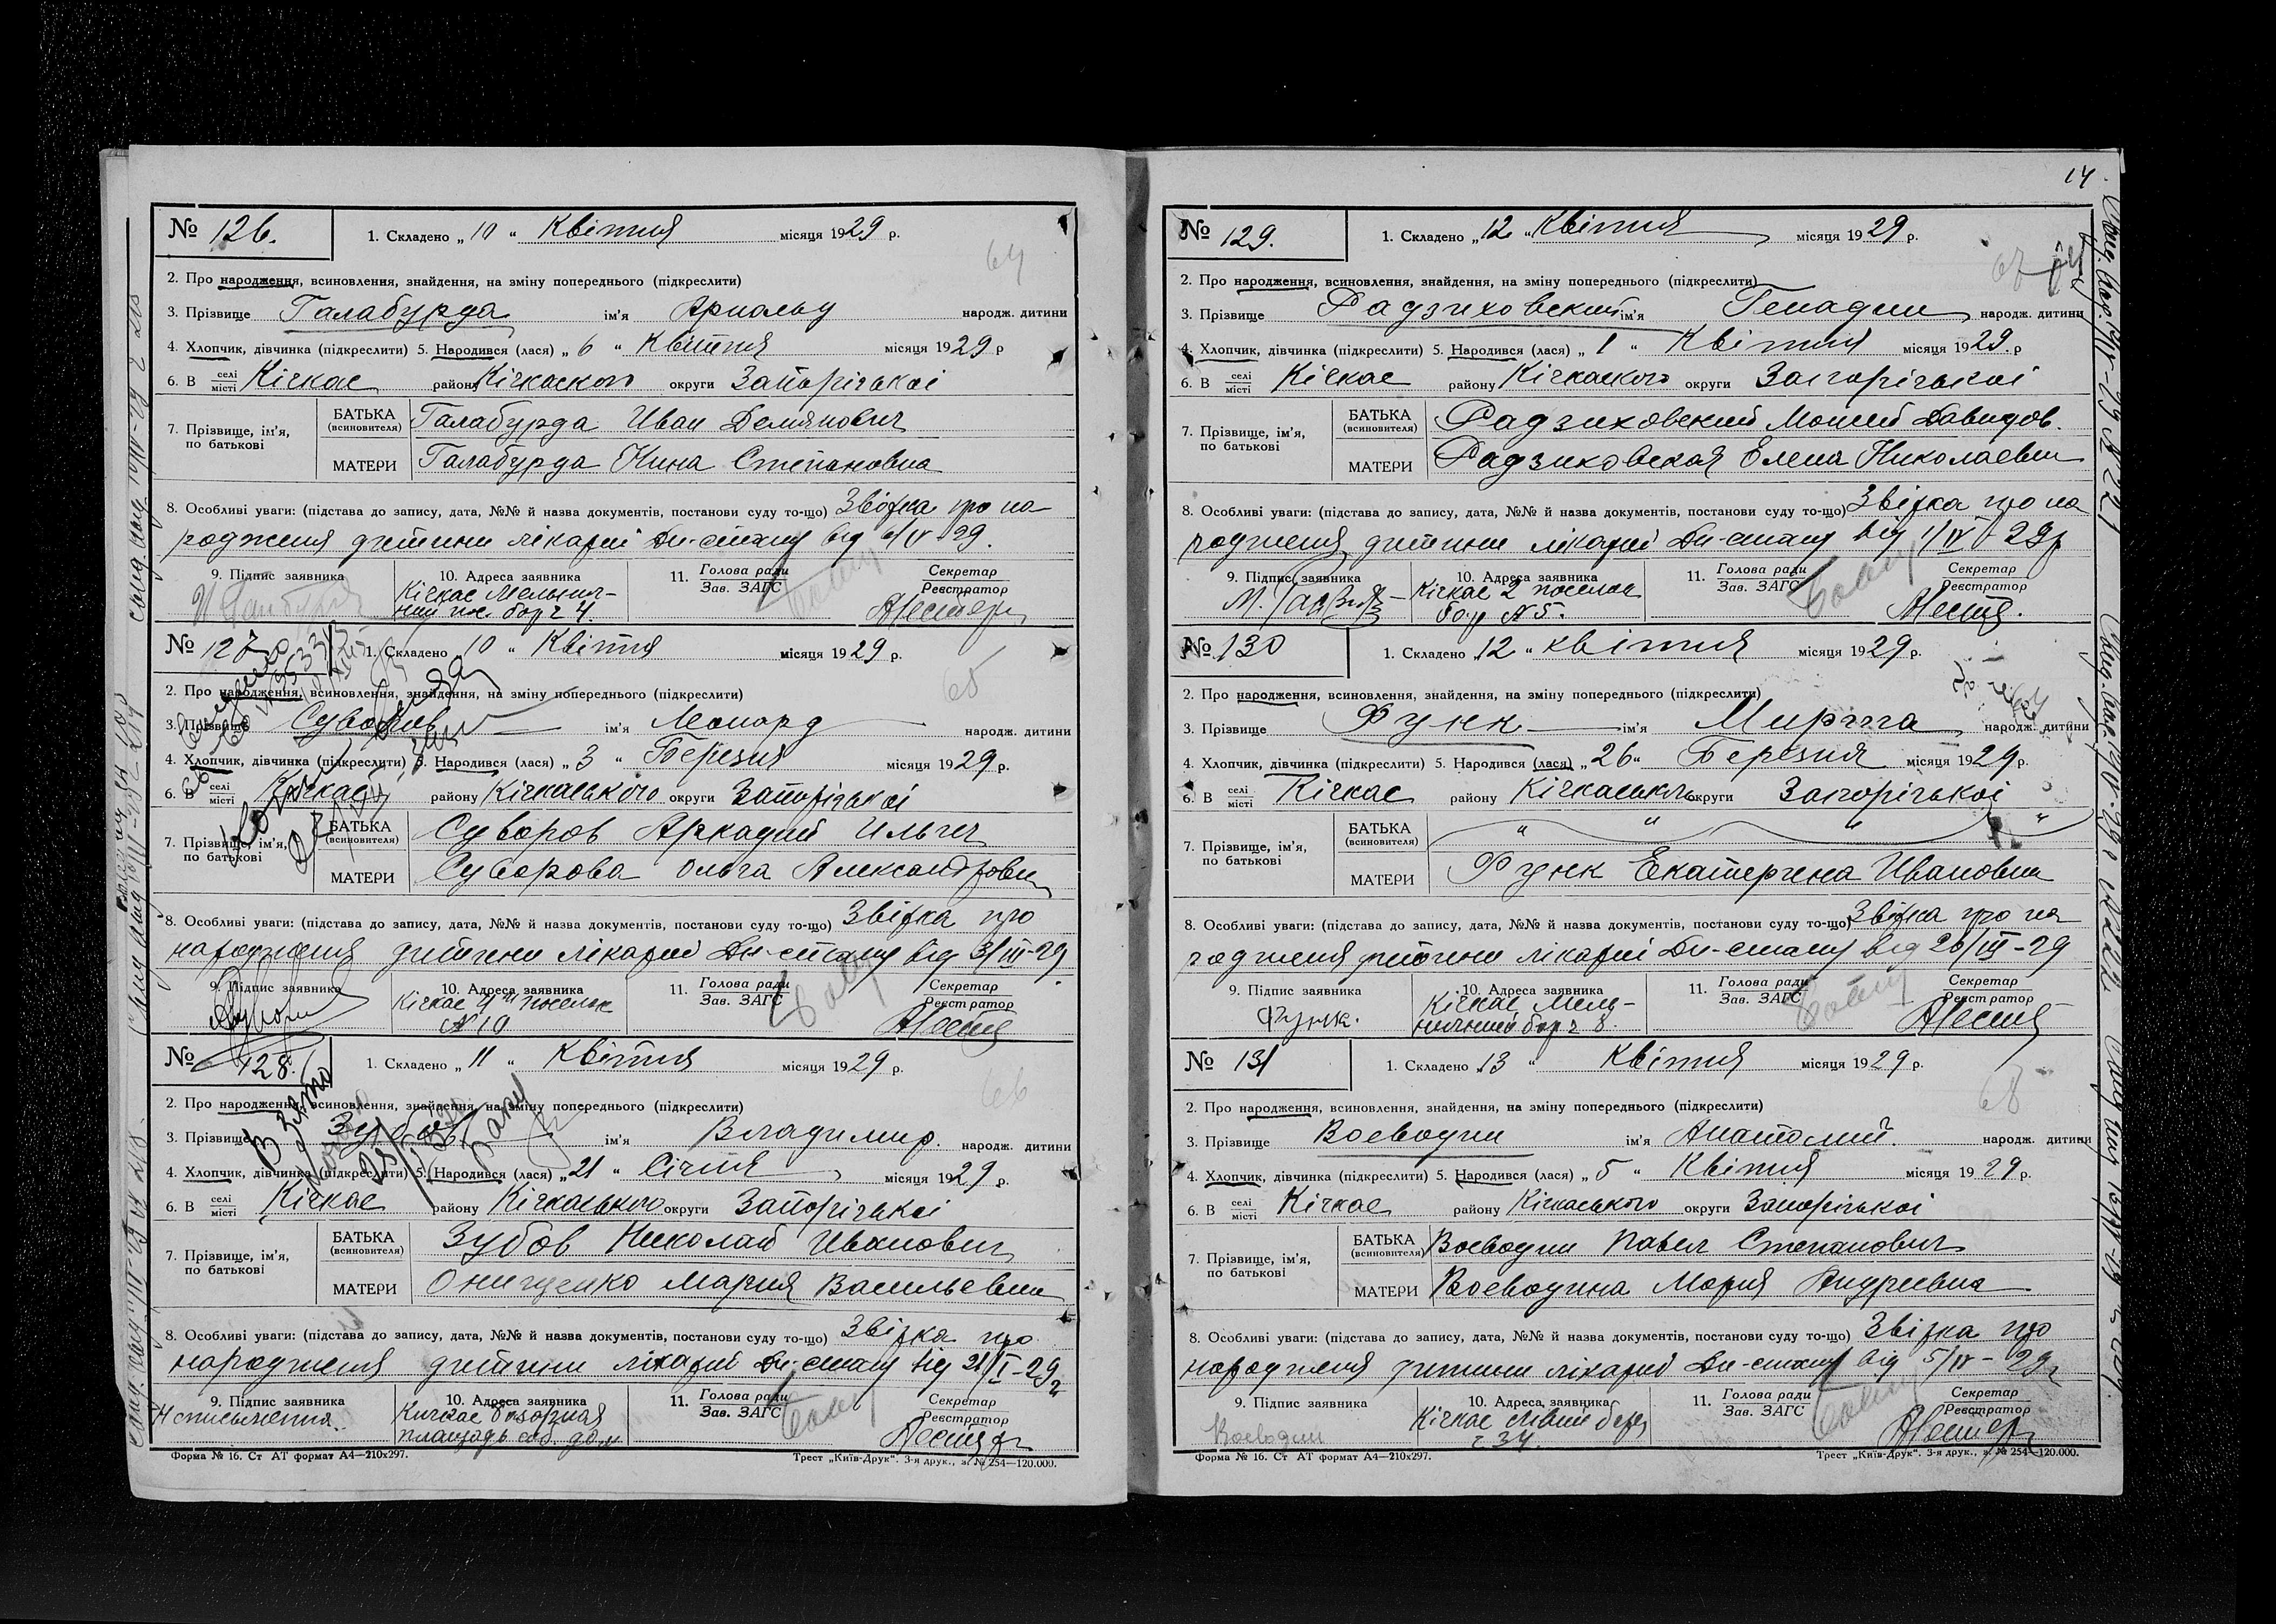 № 126. 1. Складено „ 10 “ Квітня місяця 1929 р.
2. Про народження, всиновлення, знайдення, на зміну попереднього (підкреслити)
3. Прізвище Галабурда ім'я Арнольд народж. дитини
4. Хлопчик, дівчинка (підкреслити) 5. Народився (лася) „ 6 “ Квітня місяця 1929 р
6. В селі місті Кічкас району Кічкаского округи Запорізької
7. Прізвище, ім'я, по батькові
БАТЬКА (всиновителя) Галабурда Иван Демянович
МАТЕРИ Галабурда Нина Степановна
8. Особливі уваги: (підстава до запису, дата, №№ й назва документів, постанови суду то-що) Звістка про на
родження дитини лікарні Дн-стану від 6/IV-29.
9. Підпис заявника 10. Адреса заявника 11. Голова ради Зав. ЗАГС Секретар Реєстратор
Кічкас Мельнич-
ний пос. бар 24
№ 127 1. Складено 10 “ Квітня місяця 1929 р.
2. Про народження, всиновлення, знайдення, на зміну попереднього (підкреслити)
3. Прізвище Суворов ім'я Леонард народж. дитини
4. Хлопчик, дівчинка (підкреслити) 5. Народився (лася) „ 3 “ Березня місяця 1929 р.
6. В селі місті Кічкас району Кічкаського округи Запорізької
7. Прізвище, ім'я, по батькові
БАТЬКА (всиновителя) Суворов Аркадий Ильич
МАТЕРИ Суворова Ольга Александровна
8. Особливі уваги: (підстава до запису, дата, №№ й назва документів, постанови суду то-що) Звістка про
народження дитини лікарні Дн-стану від 3/III-29
9. Підпис заявника 10. Адреса заявника 11. Голова ради Зав. ЗАГС Секретар Реєстратор
Кічкас 4й поселок
№ 10
№ 128. 1. Складено „ 11 “ Квітня місяця 1929 р.
2. Про народження, всиновлення, знайдення, на зміну попереднього (підкреслити)
3. Прізвище Зубов ім'я Владимир. народж. дитини
4. Хлопчик, дівчинка (підкреслити) 5. Народився (лася) „ 21 “ Січня місяця 1929 р.
6. В селі місті Кічкас району Кічкаського округи Запорізької
7. Прізвище, ім'я, по батькові
БАТЬКА (всиновителя) Зубов Николай Иванович
МАТЕРИ Онищенко Мария Васильевна
8. Особливі уваги: (підстава до запису, дата, №№ й назва документів, постанови суду то-що) Звістка про
народження дитини лікарні Дн-стану від 21/I-29р
9. Підпис заявника 10. Адреса заявника 11. Голова ради Зав. ЗАГС Секретар Реєстратор
Неписьменна Кичкас базарная
площадь соб. дом
Форма № 16. Ст АТ формат А4—210х297. Трест „Київ-Друк“. 3-я друк., з. № 254—120.000.
14
№ 129. 1. Складено „ 12 “ Квітня місяця 1929 р.
2. Про народження, всиновлення, знайдення, на зміну попереднього (підкреслити)
3. Прізвище Радзиховский ім'я Генадий народж. дитини
4. Хлопчик, дівчинка (підкреслити) 5. Народився (лася) „ 1 “ Квітня місяця 1929 р
6. В селі місті Кічкас району Кічкаского округи Запорізької
7. Прізвище, ім'я, по батькові
БАТЬКА (всиновителя) Радзиховский Моисей Давидов.
МАТЕРИ Радзиховская Елена Николаевна
8. Особливі уваги: (підстава до запису, дата, №№ й назва документів, постанови суду то-що) Звістка про на
родження дитини лікарні Дн-стану від 1/IV-29р
9. Підпис заявника 10. Адреса заявника 11. Голова ради Зав. ЗАГС Секретар Реєстратор
Кічкас 2 поселок
бар № 5.
№ 130 1. Складено „ 12 “ квітня місяця 1929 р.
2. Про народження, всиновлення, знайдення, на зміну попереднього (підкреслити)
3. Прізвище Функ ім'я Мирта народж. дитини
4. Хлопчик, дівчинка (підкреслити) 5. Народився (лася) „ 26 “ Березня місяця 1929 р.
6. В селі місті Кічкас району Кічкаського округи Запорізької
7. Прізвище, ім'я, по батькові
БАТЬКА (всиновителя) “ “ “ “
МАТЕРИ Функ Екатерина Ивановна
8. Особливі уваги: (підстава до запису, дата, №№ й назва документів, постанови суду то-що) Звістка про на
родження дитини лікарні Дн-стану від 26/III-29
9. Підпис заявника 10. Адреса заявника 11. Голова ради Зав. ЗАГС Секретар Реєстратор
Функ. Кічкас, Мель-
ничний бар 28.
№ 131 1. Складено „ 13 “ Квітня місяця 1929 р.
2. Про народження, всиновлення, знайдення, на зміну попереднього (підкреслити)
3. Прізвище Воеводин ім'я Анатолий. народж. дитини
4. Хлопчик, дівчинка (підкреслити) 5. Народився (лася) „ 5 “ Квітня місяця 1929 р.
6. В селі місті Кічкас району Кічкаського округи Запорізької
7. Прізвище, ім'я, по батькові
БАТЬКА (всиновителя) Воеводин Павел Степанович
МАТЕРИ Воеводина Мария Андреевна
8. Особливі уваги: (підстава до запису, дата, №№ й назва документів, постанови суду то-що) Звістка про
народження дитини лікарні Дн-стану від 5/IV-29р
9. Підпис заявника 10. Адреса заявника 11. Голова ради Зав. ЗАГС Секретар Реєстратор
Воеводин Кічкас лівий берег
234.
Форма № 16. Ст АТ формат А4—210х297. Трест „Київ-Друк“. 3-я друк., з. № 254—120.000.